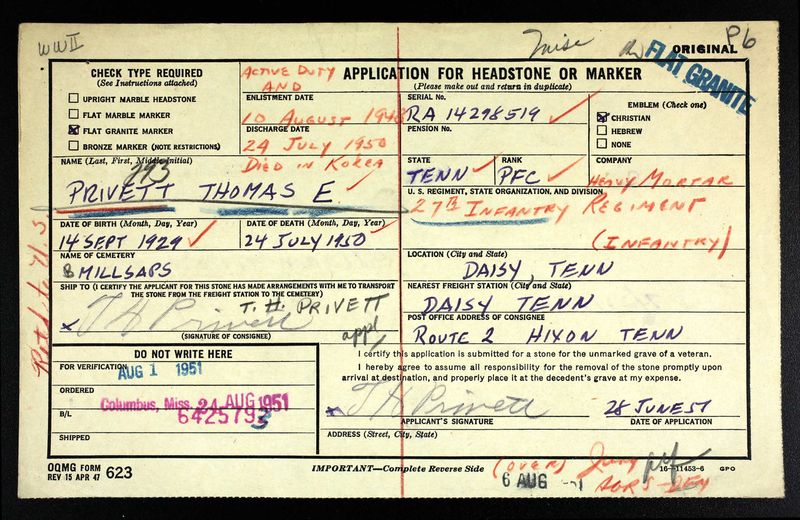 WWII
Misc
P6
ORIGINAL
FLAT GRANITE
CHECK TYPE REQUIRED
(See Instructions attached)
UPRIGHT MARBLE HEADSTONE
FLAT MARBLE MARKER
FLAT GRANITE MARKER
BRONZE MARKER (NOTE RESTRICTIONS)
ACTIVE DUTY
AND
ENLISTMENT DATE
10 AUGUST 1948
DISCHARGE DATE
24 JULY 1950
DIED IN KOREA
APPLICATION FOR HEADSTONE OR MARKER
(Please make out and return in duplicate)
SERIAL No.
RA 14298519
PENSION No.
EMBLEM (Check one)
CHRISTIAN
HEBREW
NONE
NAME (Last, First, Middle Initial)
PRIVETT THOMAS E
STATE
TENN
RANK
PFC
COMPANY
HEAVY MORTAR
U. S. REGIMENT, STATE ORGANIZATION, AND DIVISION
27TH INFANTRY REGIMENT
(INFANTRY)
DATE OF BIRTH (Month, Day, Year)
14 SEPT 1929
DATE OF DEATH (Month, Day, Year)
24 JULY 1950
NAME OF CEMETERY
MILLSAPS
LOCATION (City and State)
DAISY, TENN
SHIP TO (I CERTIFY THE APPLICANT FOR THIS STONE HAS MADE ARRANGEMENTS WITH ME TO TRANSPORT
THE STONE FROM THE FREIGHT STATION TO THE CEMETERY)
T. H. PRIVETT
T H Privett
appl
(SIGNATURE OF CONSIGNEE)
NEAREST FREIGHT STATION (City and State)
DAISY TENN
POST OFFICE ADDRESS OF CONSIGNEE
ROUTE 2 HIXON TENN
DO NOT WRITE HERE
FOR VERIFICATION
AUG 1 1951
ORDERED
Columbus, Miss. 24 AUG 1951
B/L
6425793
SHIPPED
I certify this application is submitted for a stone for the unmarked grave of a veteran.
I hereby agree to assume all responsibility for the removal of the stone promptly upon
arrival at destination, and properly place it at the decedent's grave at my expense.
T H Privett
28 JUNE 51
APPLICANT'S SIGNATURE
DATE OF APPLICATION
ADDRESS (Street, City, State)
OQMG FORM
REV 15 APR 47 623
IMPORTANT—Complete Reverse Side
(OVER)
16—11453-6 GPO
6 AUG